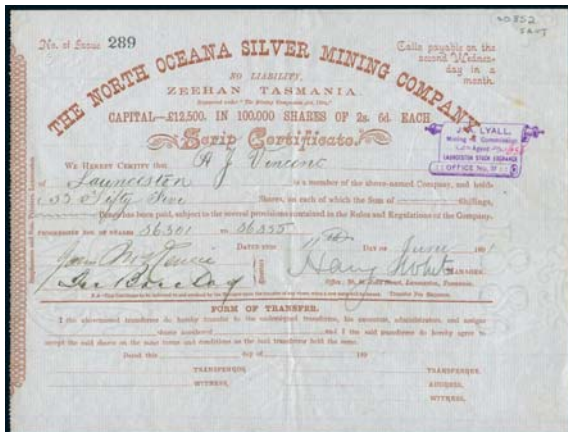 No. of Issue 289
Calls payable on the
second Wednes-
day in a
month.
THE NORTH OCEANA SILVER MINING COMPANY
NO LIABILITY,
ZEEHAN TASMANIA.
CAPITAL—£12,500. IN 100,000 SHARES OF 2s. 6d. EACH
Scrip Certificate.
LYALL,
Mining
Agent
LAUNCESTON STOCK EXCHANGE
OFFICE No.
WE HEREBY CERTIFY that A J Vincent
of Launceston is a member of the above-named Company, and holds
55 Fifty Five Shares, on each of which the Sum of Shillings,
Pence has been paid, subject to the several provisions contained in the Rules and Regulations of the Company.
PROGRESSIVE NOS. OF SHARES 36301 TO 36355
DATED THIS 11th DAY OF June 1891
MANAGER
FORM OF TRANSFER.
I the above-named transferror do hereby transfer to the undersigned transferree, his executors, administrators, and assigns
shares numbered and I the said transferree do hereby agree to
accept the said shares on the same terms and conditions as the said transferror held the same.
Dated this day of 189
TRANSFERROR. TRANSFERREE.
WITNESS. ADDRESS.
WITNESS.